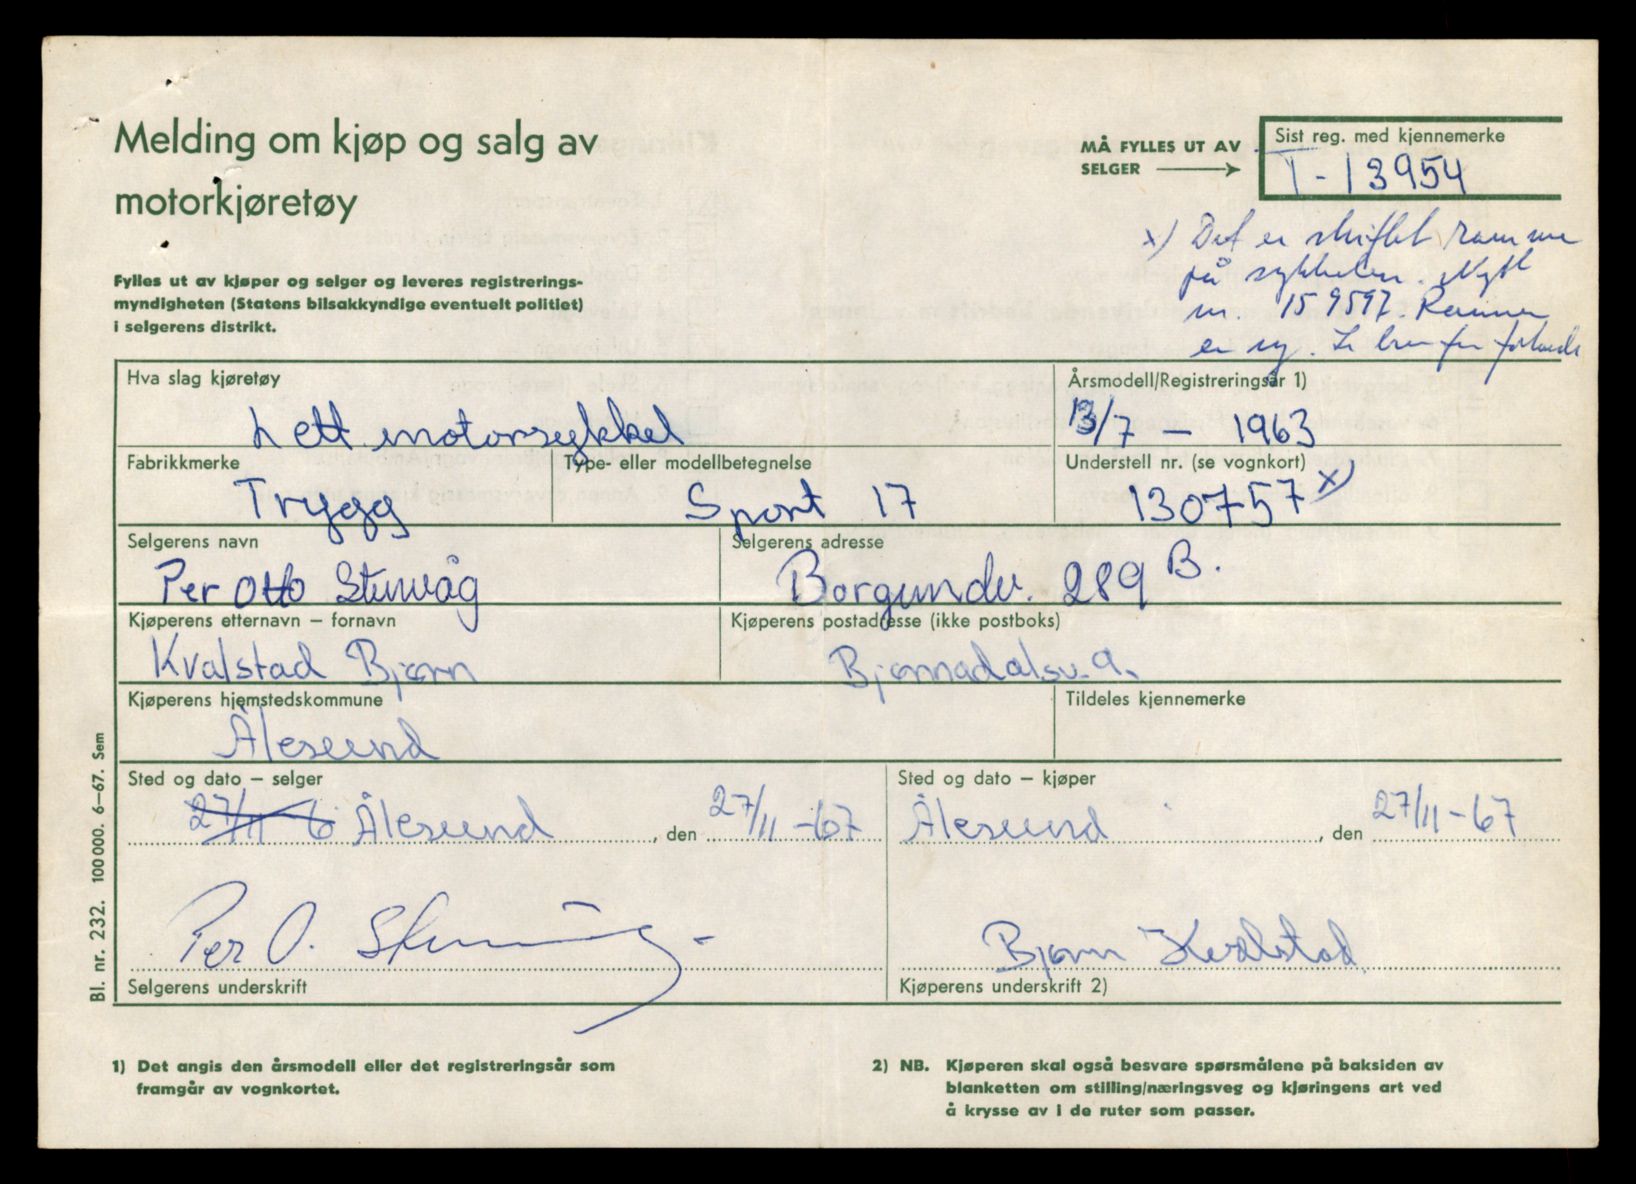 Melding om kjøp og salg av
motorkjøretøy
Fylles ut av kjøper og selger og leveres registrerings-
myndigheten (Statens bilsakkyndige eventuelt politiet)
i selgerens distrikt.
MÅ FYLLES UT AV
SELGER
Sist reg. med kjennemerke
T-13954
x) Det er skiftet ramme
på sykkelen. Nytt
nr. 159597. Rammen
er ny. Se brev fra
Hva slag kjøretøy
Lett motorsykkel
Årsmodell/Registreringsår 1)
13/7 - 1963
Fabrikkmerke
Trygg
Type- eller modellbetegnelse
Sport 17
Understell nr. (se vognkort)
130757 x)
Selgerens navn
Per Otto Stenvåg
Selgerens adresse
Borgundv. 289 B.
Kjøperens etternavn – fornavn
Kvalstad Bjørn
Kjøperens postadresse (ikke postboks)
Bjørnadalsv. 9.
Kjøperens hjemstedskommune
Ålesund
Tildeles kjennemerke
Sted og dato – selger
27/11 6 Ålesund, den 27/11-67
Sted og dato – kjøper
Ålesund, den 27/11-67
Per O. Stenvåg
Selgerens underskrift
Bjørn Kvalstad
Kjøperens underskrift 2)
Bl. nr. 232. 100 000. 6–67. Sem
1) Det angis den årsmodell eller det registreringsår som
framgår av vognkortet.
2) NB. Kjøperen skal også besvare spørsmålene på baksiden av
blanketten om stilling/næringsveg og kjøringens art ved
å krysse av i de ruter som passer.